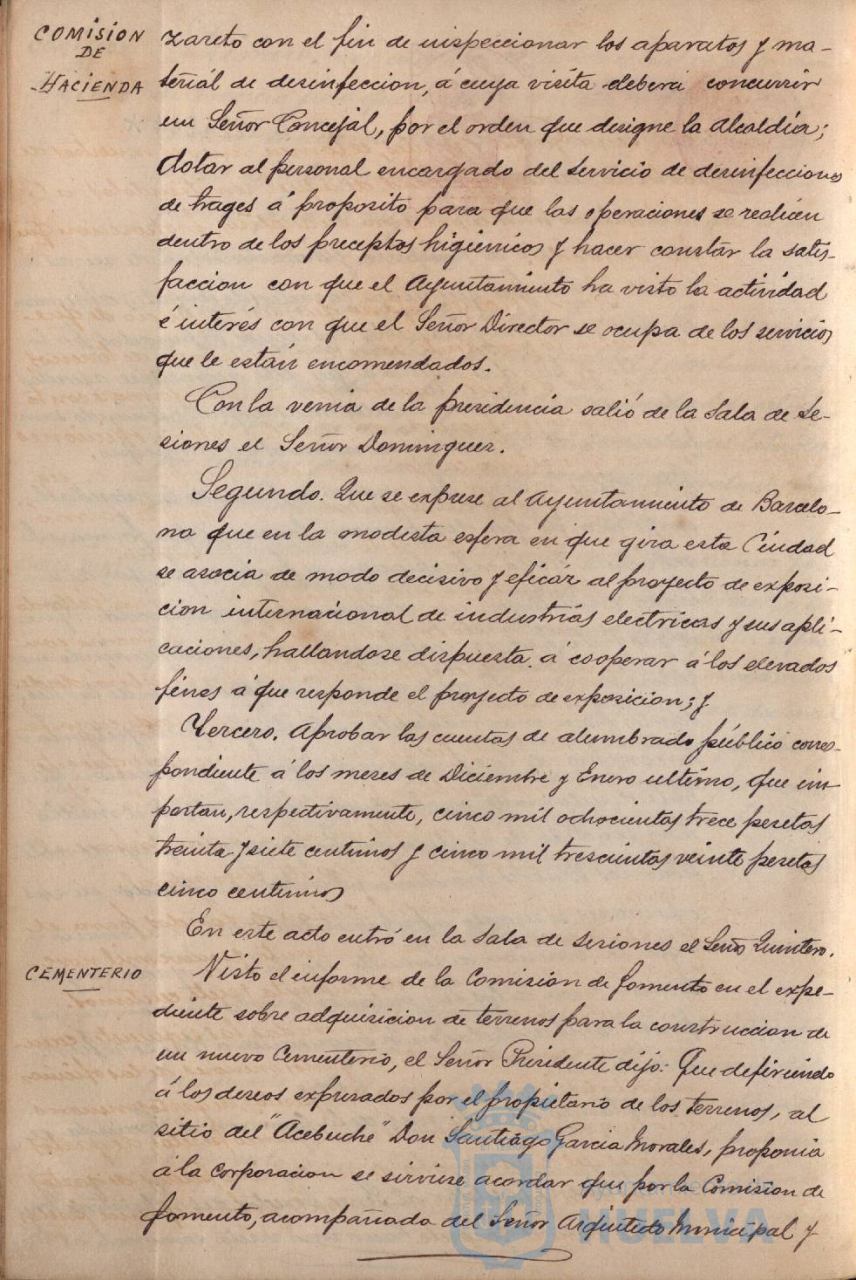 COMISION
DE
HACIENDA
zareto con el fin de inspeccionar los aparatos y ma-
terial de desinfeccion, á cuya visita deberá concurrir
un Señor Concejal, por el orden que designe la Alcaldía;
dotar al personal encargado del servicio de desinfecciones
de trages á proposito para que las operaciones se realicen
dentro de los preceptos higiénicos y hacer constar la satis-
faccion con que el Ayuntamiento ha visto la actividad
é interés con que el Señor Director se ocupa de los servicios
que le están encomendados.
Con la venia de la presidencia salió de la Sala de Se-
siones el Señor Dominguez.
Segundo. Que se exprese al Ayuntamiento de Barcelo-
na que en la modesta esfera en que gira esta Ciudad
se asocia de modo decisivo y eficáz al proyecto de exposi-
cion internacional de industrias electricas y sus apli-
caciones, hallandose dispuesta á cooperar á los elevados
fines á que responde el proyecto de exposicion; y
Tercero. Aprobar las cuentas de alumbrado público corres-
pondiente á los meses de Diciembre y Enero ultimo, que im-
portan, respectivamente, cinco mil ochocientas trece pesetas
treinta y siete centimos y cinco mil trescientas veinte pesetas
cinco centimos
En este acto entró en la Sala de sesiones el Señor Quintero.
CEMENTERIO
Visto el informe de la Comision de fomento en el expe-
diente sobre adquisicion de terrenos para la construccion de
un nuevo Cementerio, el Señor Presidente dijo: Que defiriendo
á los deseos expresados por el propietario de los terrenos, al
sitio del "Acebuche" Don Santiago Garcia Morales, proponia
á la corporacion se sirviese acordar que por la Comision de
fomento, acompañada del Señor Arquitecto Municipal y
HUELVA